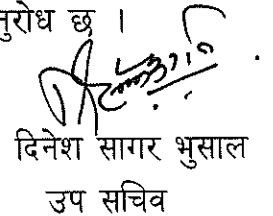 नुरोध छ ।
दिनेश सागर भुसाल
उप सचिव